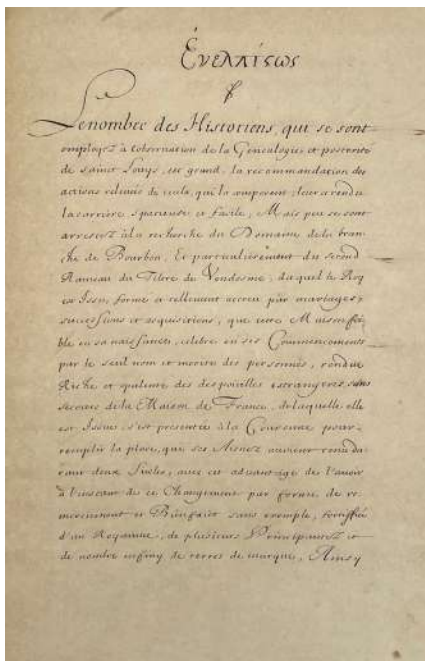 Ἐνελπίςως
Le nombre des Historiens, qui se sont
employez à l'observation de la Genealogie et posterité
de sainct Louys, est grand, la recommandation des
actions relevées de ceulx, qui la composent, leur a rendu
la carriere spatieuse et facile, Mais peu se sont
arrestez à la recherche du Domaine de la bran-
che de Bourbon, Et particulierement du second
Rameau du Tiltre de Vendosme, duquel le Roy
est Issu, formé et tellement accreu par mariages,
successions et acquisitions, que cette Maison foi-
ble en sa naissance, celebre en ses Commencements
par le seul nom et merite des personnes, rendue
Riche et opulente des despouilles estrangeres, sans
secours de la Maison de France, de laquelle elle
est Issue, s'est presentée à la Couronne pour
remplir la place, que ses Aisnez avoient tenu du-
rant deux Siecles, avec cet advantage de l'avoir
à l'instant de ce Changement par forme de re-
merciement et Bienfaict sans exemple, fortifiée
d'un Royaume, de plusieurs Principautez et
de nombre infiny de terres de marque, Ainsy